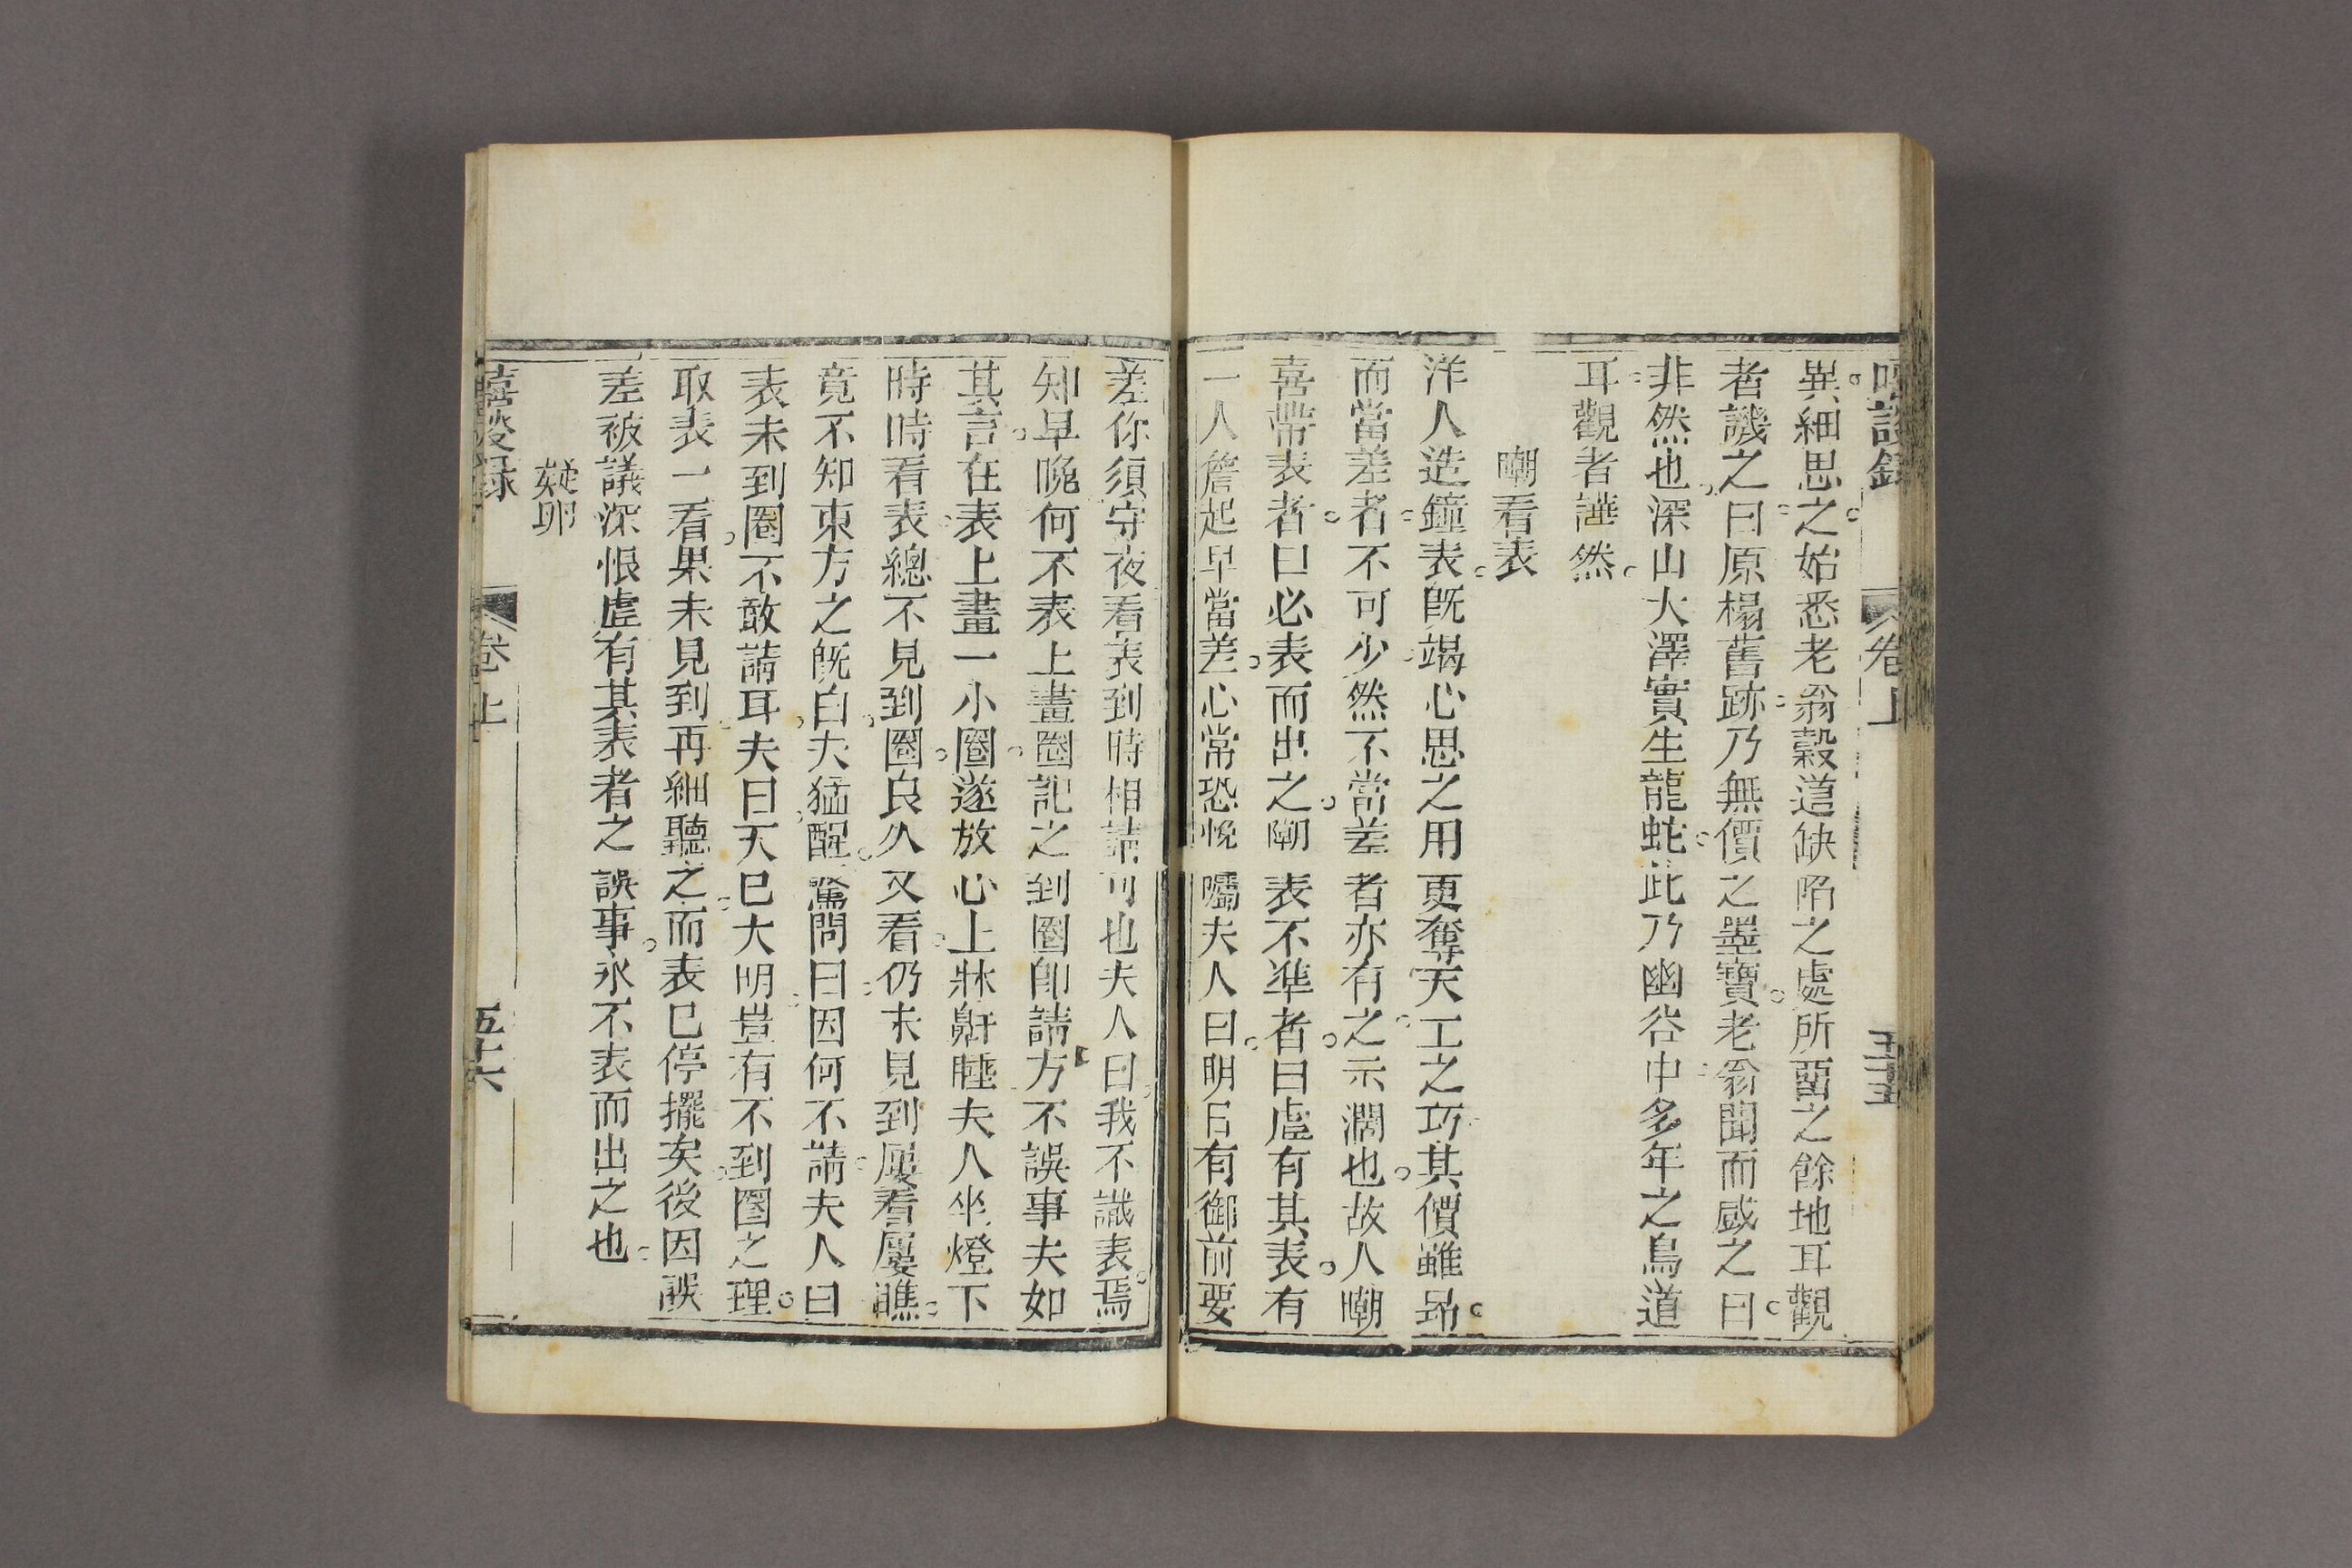 嘻談錄 卷上 五十五
異細思之始悉老翁穀道缺陷之處所畱之餘地耳觀
者譏之曰原榻舊跡乃無價之墨寶老翁聞而感之曰
非然也深山大澤實生龍蛇此乃幽谷中多年之鳥道
耳觀者譁然
嘲看表
洋人造鐘表旣竭心思之用更奪天工之巧其價雖昻
而當差者不可少然不當差者亦有之示濶也故人嘲
喜帶表者曰必表而出之嘲表不準者曰虛有其表有
一人詹起早當差心常恐悞囑夫人曰明日有御前要
差你須守夜看表到時相請可也夫人曰我不識表焉
知早晚何不表上畫圈記之到圈卽請方不誤事夫如
其言在表上畫一小圈遂放心上牀鼾睡夫人坐燈下
時時看表總不見到圈良久又看仍未見到屢看屢瞧
竟不知東方之旣白夫猛醒驚問曰因何不請夫人曰
表未到圈不敢請耳夫曰天已大明豈有不到圈之理
取表一看果未見到再細聽之而表已停擺矣後因誤
差被議深恨虛有其表者之誤事永不表而出之也
疑卵
嘻談錄 卷上 五十六